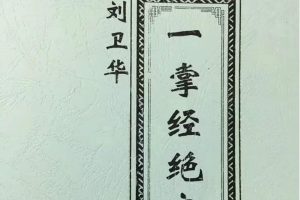 一掌经绝
刘卫华